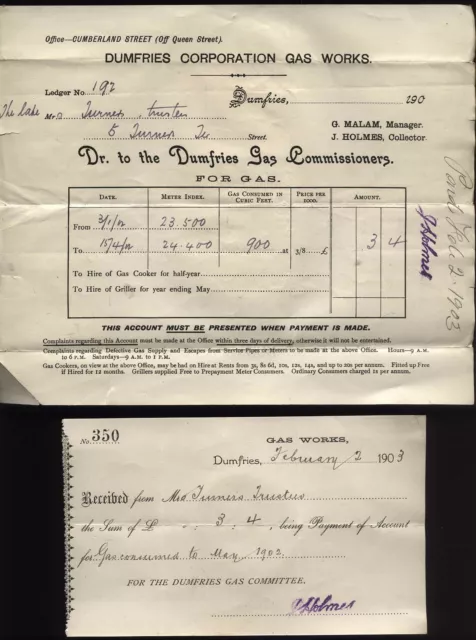 Office—CUMBERLAND STREET (Off Queen Street).
DUMFRIES CORPORATION GAS WORKS.
Ledger No. 192
Dumfries, 190
The late Mrs Turner, trustees
G. MALAM, Manager.
5 Turner Street.
J. HOLMES, Collector.
Dr. to the Dumfries Gas Commissioners.
FOR GAS.
DATE. METER INDEX. GAS CONSUMED IN CUBIC FEET. PRICE PER 1000. AMOUNT.
From 3/1/02 23.500
To 15/4/02 24.400 900 at 3/8 £ 3 4
To Hire of Gas Cooker for half-year
To Hire of Griller for year ending May
JHolmes
Paid Feb 2. 1903
THIS ACCOUNT MUST BE PRESENTED WHEN PAYMENT IS MADE.
Complaints regarding this Account must be made at the Office within three days of delivery, otherwise it will not be entertained.
Complaints regarding Defective Gas Supply and Escapes from Service Pipes or Meters to be made at the above Office. Hours—9 A.M.
to 6 P.M. Saturdays—9 A.M. to 1 P.M.
Gas Cookers, on view at the above Office, may be had on Hire at Rents from 5s, 8s 6d, 10s, 12s, 14s, and up to 20s per annum. Fitted up Free
if Hired for 12 months. Grillers supplied Free to Prepayment Meter Consumers. Ordinary Consumers charged 1s per annum.
No. 350
GAS WORKS,
Dumfries, February 2 1903
Received from Mrs Turners Trustees
the Sum of £ - : 3 : 4, being Payment of Account
for Gas consumed to May 1902
FOR THE DUMFRIES GAS COMMITTEE.
JHolmes